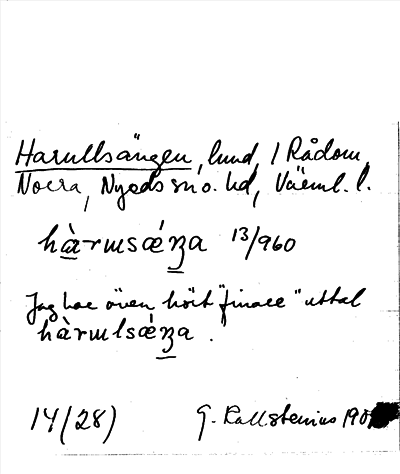 Harullsängen, lund, i Rådom,
Norra, Nyeds sn o. hd, Värml. l.
hàrɯsǽŋa 13/960
Jag har även hört "finare" uttal
hàrɯlsǽŋa.
14(28) G. Kallstenius 190